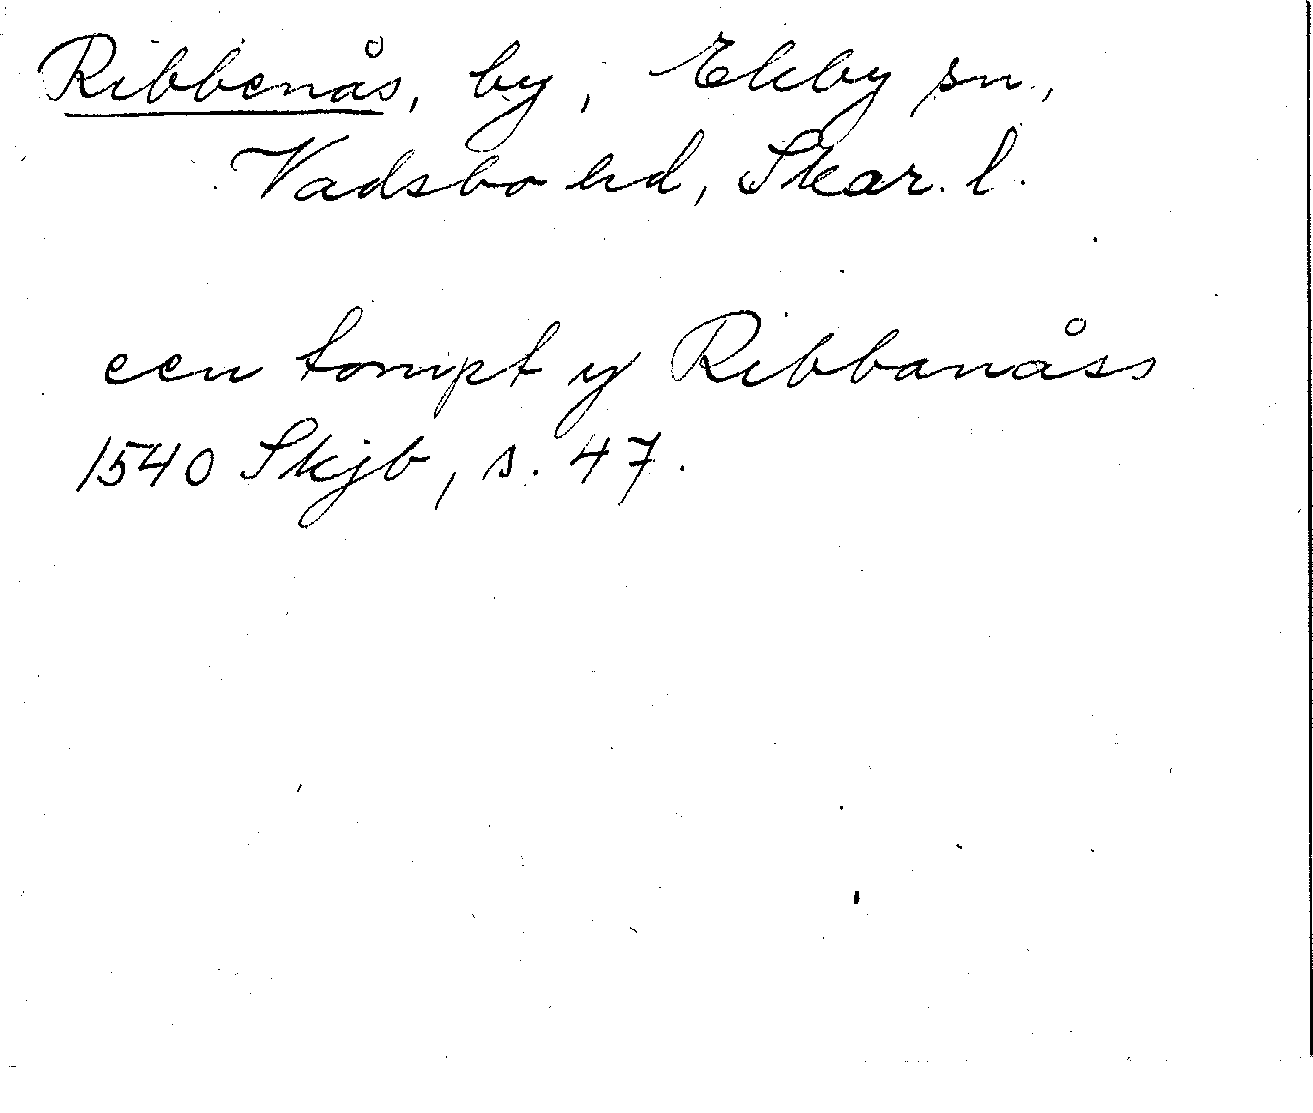 Ribbenås, by, Ekby sn.,
Vadsbo hd, Skar. l.
een tompt y Ribbanåss
1540 Skjb, s. 47.